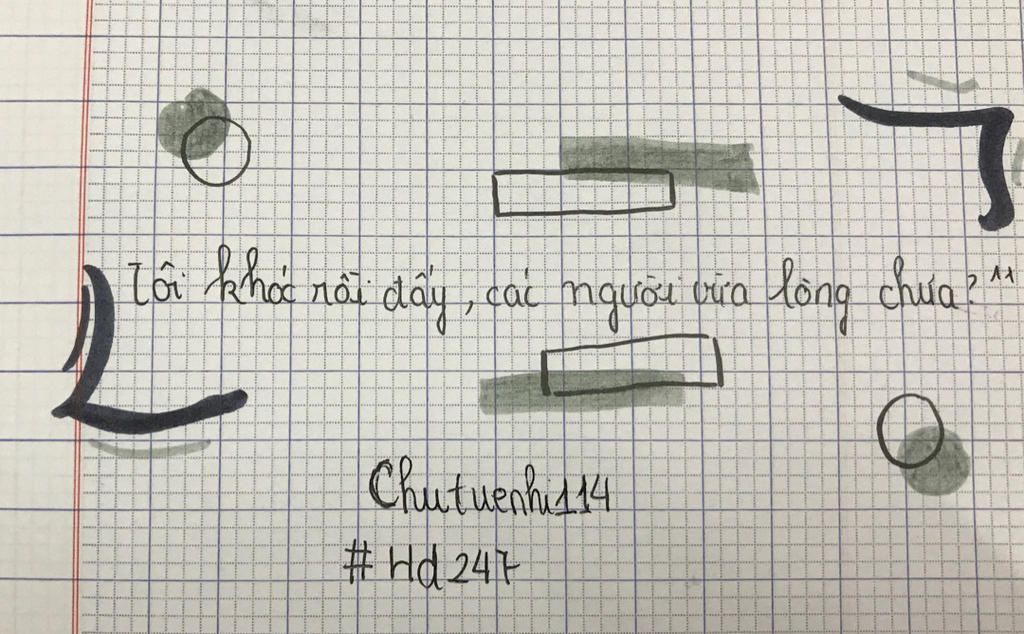 Tôi khóc rồi đấy, các người vừa lòng chưa?"
Chutuenhi114
#Hd247